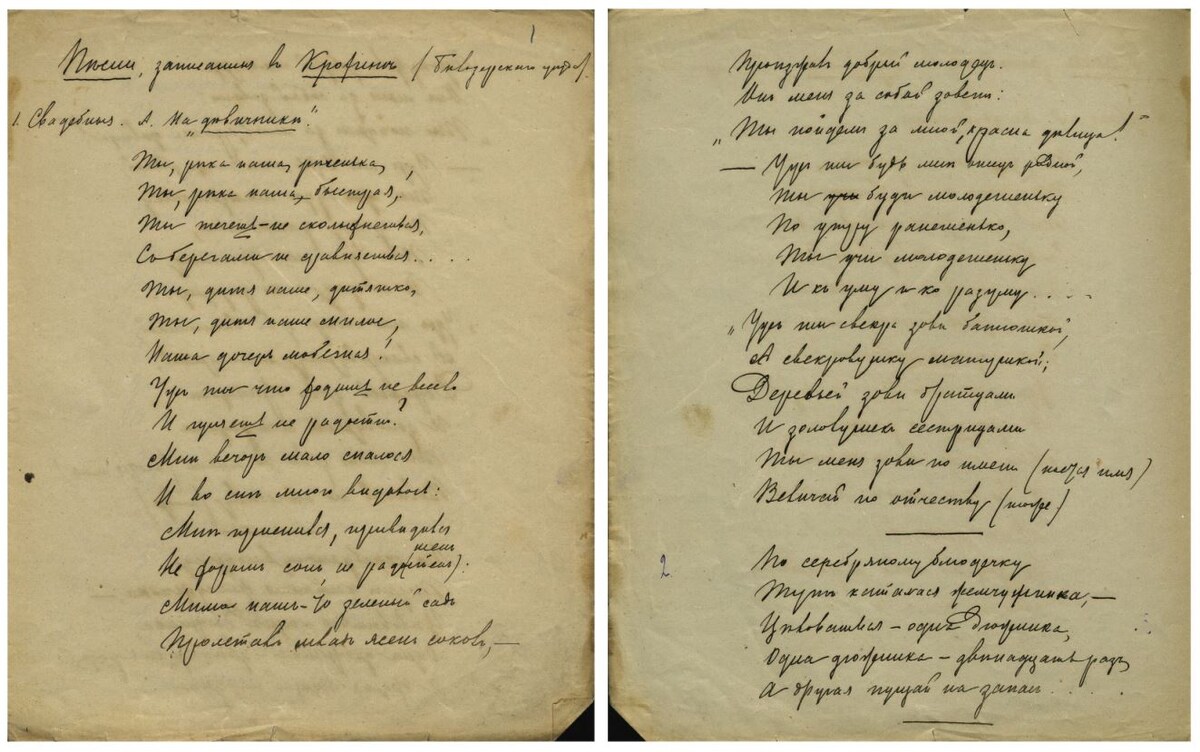 1
Пѣсни, записанныя въ Крохинѣ (Бѣлозерскаго уѣзда).
1. Свадебныя. А. На „дѣвичникѣ".
Ты, рѣка наша, рѣченька,
Ты, рѣка наша, быстрая,
Ты течешь-не сколыхнешься,
Со берегами не сравняешься....
Ты, дитя наше, дитятко,
Ты, дитя наше милое,
Наша дочерь любезная!
Ужъ ты что ходишь не весело
И гуляешь не радостно?
Мнѣ вечоръ мало спалося
И во снѣ много видѣлось:
Мнѣ приснился, привидѣлся
Не хорошъ сонъ, не радошенъ
Мимо нашъ-то зеленый садъ
Пролеталъ младъ ясенъ соколъ,—
добрый молодецъ.
Онъ меня за собой зоветъ:
„Ты пойдемъ за мной, красна дѣвица!"
— Ужъ ты будь мнѣ отецъ родной,
Ты буди молодешеньку
По утру ранешенько,
Ты учи молодешеньку
И къ уму и ко разуму....
„Ужъ ты свекра зови батюшкой,
А свекровушку матушкой;
Деверьей зови братцами
И золовушекъ сестрицами
Ты меня зови по имени (имя)
Величай по отчеству (тоже)
2.
По серебряному блюдечку
Тутъ каталася жемчужинка,—
Цѣловаться – одна дюжинка,
Одна дюжинка – двѣнадцать разъ,
А другая пущай на запасъ....